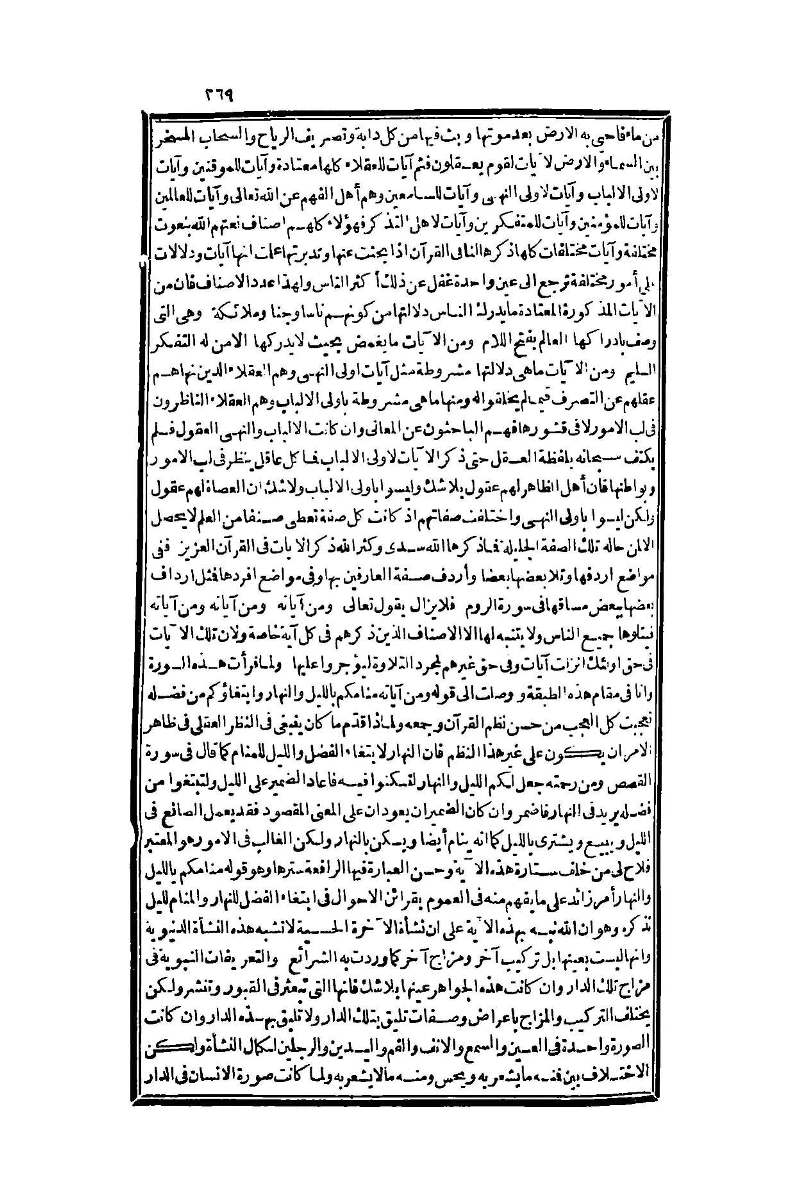 ٢٦٩
من ماء فاحيى به الارض بعد موتها وبث فيها من كل دابة وتصريف الرياح والسحاب المسخر
بين السماء والارض لآيات لقوم يعقلون فثم آيات للعقلاء كلها معتادة وآيات للموقنين وآيات
لاولى الالباب وآيات لاولى النهى وآيات للسامعين وهم أهل الفهم عن الله تعالى وآيات للعالمين
وآيات للمؤمنين وآيات للمتفكرين وآيات لاهل التذكر فهؤلاء كلهم اصناف نعتهم الله بنعوت
مختلفة وآيات مختلفات كلها ذكرها لنا فى القرآن اذا بحثت عنها وتدبرتها علمت انها آيات ودلالات
على أمور مختلفة ترجع الى عين واحدة غفل عن ذلك أكثر الناس ولهذا عدد الاصناف فان من
الآيات المذكورة المعتادة ما يدرك الناس دلالتها من كونهم ناسا وجنا وملائكة وهى التى
وصف بادراكها العالم بفتح اللام ومن الآيات ما يغمض بحيث لا يدركها الامن له التفكر
السليم ومن الآيات ما هى دلالتها مشروطة مثل آيات اولى النهى وهم العقلاء الذين نهاهم
عقلهم عن التصرف فيما لم يخلقوا له ومنها ما هى مشروطة باولى الالباب وهم العقلاء الناظرون
فى لب الامور لا فى قشورها فهم الباحثون عن المعانى وان كانت الالباب والنهى العقول فلم
يكتف سبحانه بلفظة العقل حتى ذكر الآيات لاولى الالباب فما كل عاقل ينظر فى لب الامور
وبواطنها فان أهل الظاهر لهم عقول بلا شك وليسوا باولى الالباب ولا شك ان العصاة لهم عقول
ولكن ليسوا باولى النهى واختلفت صفاتهم اذ كانت كل صفة تعطى صنفا من العلم لا يحصل
الا لمن حاله تلك الصفة الجليلة فما ذكرها الله سدى وكثر الله ذكر الآيات فى القرآن العزيز ففى
مواضع اردفها وتلا بعضها بعضا وأردف صفة العارفين بها وفى مواضع افردها فمثل ارداف
بعضها ببعض مساقها فى سورة الروم فلا يزال يقول تعالى ومن آياته ومن آياته ومن آياته
فيتلوها جميع الناس ولا يتنبه لها الا الاصناف الذين ذكرهم فى كل آية خاصة ولان تلك الآيات
فى حق اولئك انزلت آيات وفى حق غيرهم لمجرد التلاوة ليؤجروا عليها ولما قرأت هذه السورة
وانا فى مقام هذه الطبقة ووصلت الى قوله ومن آياته منامكم بالليل والنهار وابتغاؤكم من فضله
تعجبت كل العجب من حسن نظم القرآن وجمعه ولماذا قدم ما كان ينبغى فى النظر العقلى فى ظاهر
الامر ان يكون على غير هذا النظم فان النهار لابتغاء الفضل والليل للمنام كما قال فى سورة
القصص ومن رحمته جعل لكم الليل والنهار لتسكنوا فيه فاعاد الضمير على الليل ولتبتغوا من
فضله يريد فى النهار فاضمر وان كان الضميران يعودان على المعنى المقصود فقد يعمل الصانع فى
الليل ويبيع ويشترى بالليل كما انه ينام أيضا ويسكن بالنهار ولكن الغالب فى الامور هو المعتبر
فلاح لى من خلف ستارة هذه الآية وحسن العبارة فيها الرافعة سترها وهو قوله منامكم بالليل
والنهار أمر زائد على ما يفهم منه فى العموم بقرائن الاحوال فى ابتغاء الفضل للنهار والمنام لليل
نذكره وهو ان الله نبه بهذه الآية على ان نشأة الآخرة الحسية لا تشبه هذه النشأة الدنيوية
وانها ليست بعينها بل تركيب آخر ومزاج آخر كما وردت به الشرائع والتعريفات النبوية فى
مزاج تلك الدار وان كانت هذه الجواهر عينها بلا شك فانها التى تبعثر فى القبور وتنشر ولكن
يختلف التركيب والمزاج باعراض وصفات تليق بتلك الدار ولا تليق بهذه الدار وان كانت
الصورة واحدة فى العين والسمع والانف والفم واليدين والرجلين لكمال النشأة ولكن
الاختلاف بين فمنه ما يشعر به ويحس ومنه ما لا يشعر به ولما كانت صورة الانسان فى الدار